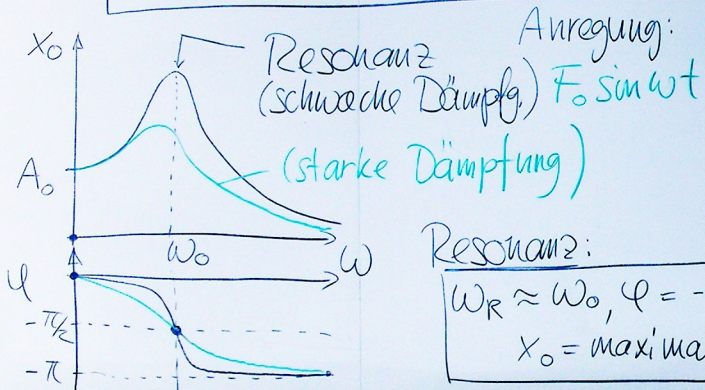 x₀
Resonanz
(schwache Dämpfg.)
Anregung:
F₀ sin ωt
(starke Dämpfung)
A₀
ω₀
ω
φ
-π/2
-π
Resonanz:
ω_R ≈ ω₀, φ = -
x₀ = maxima